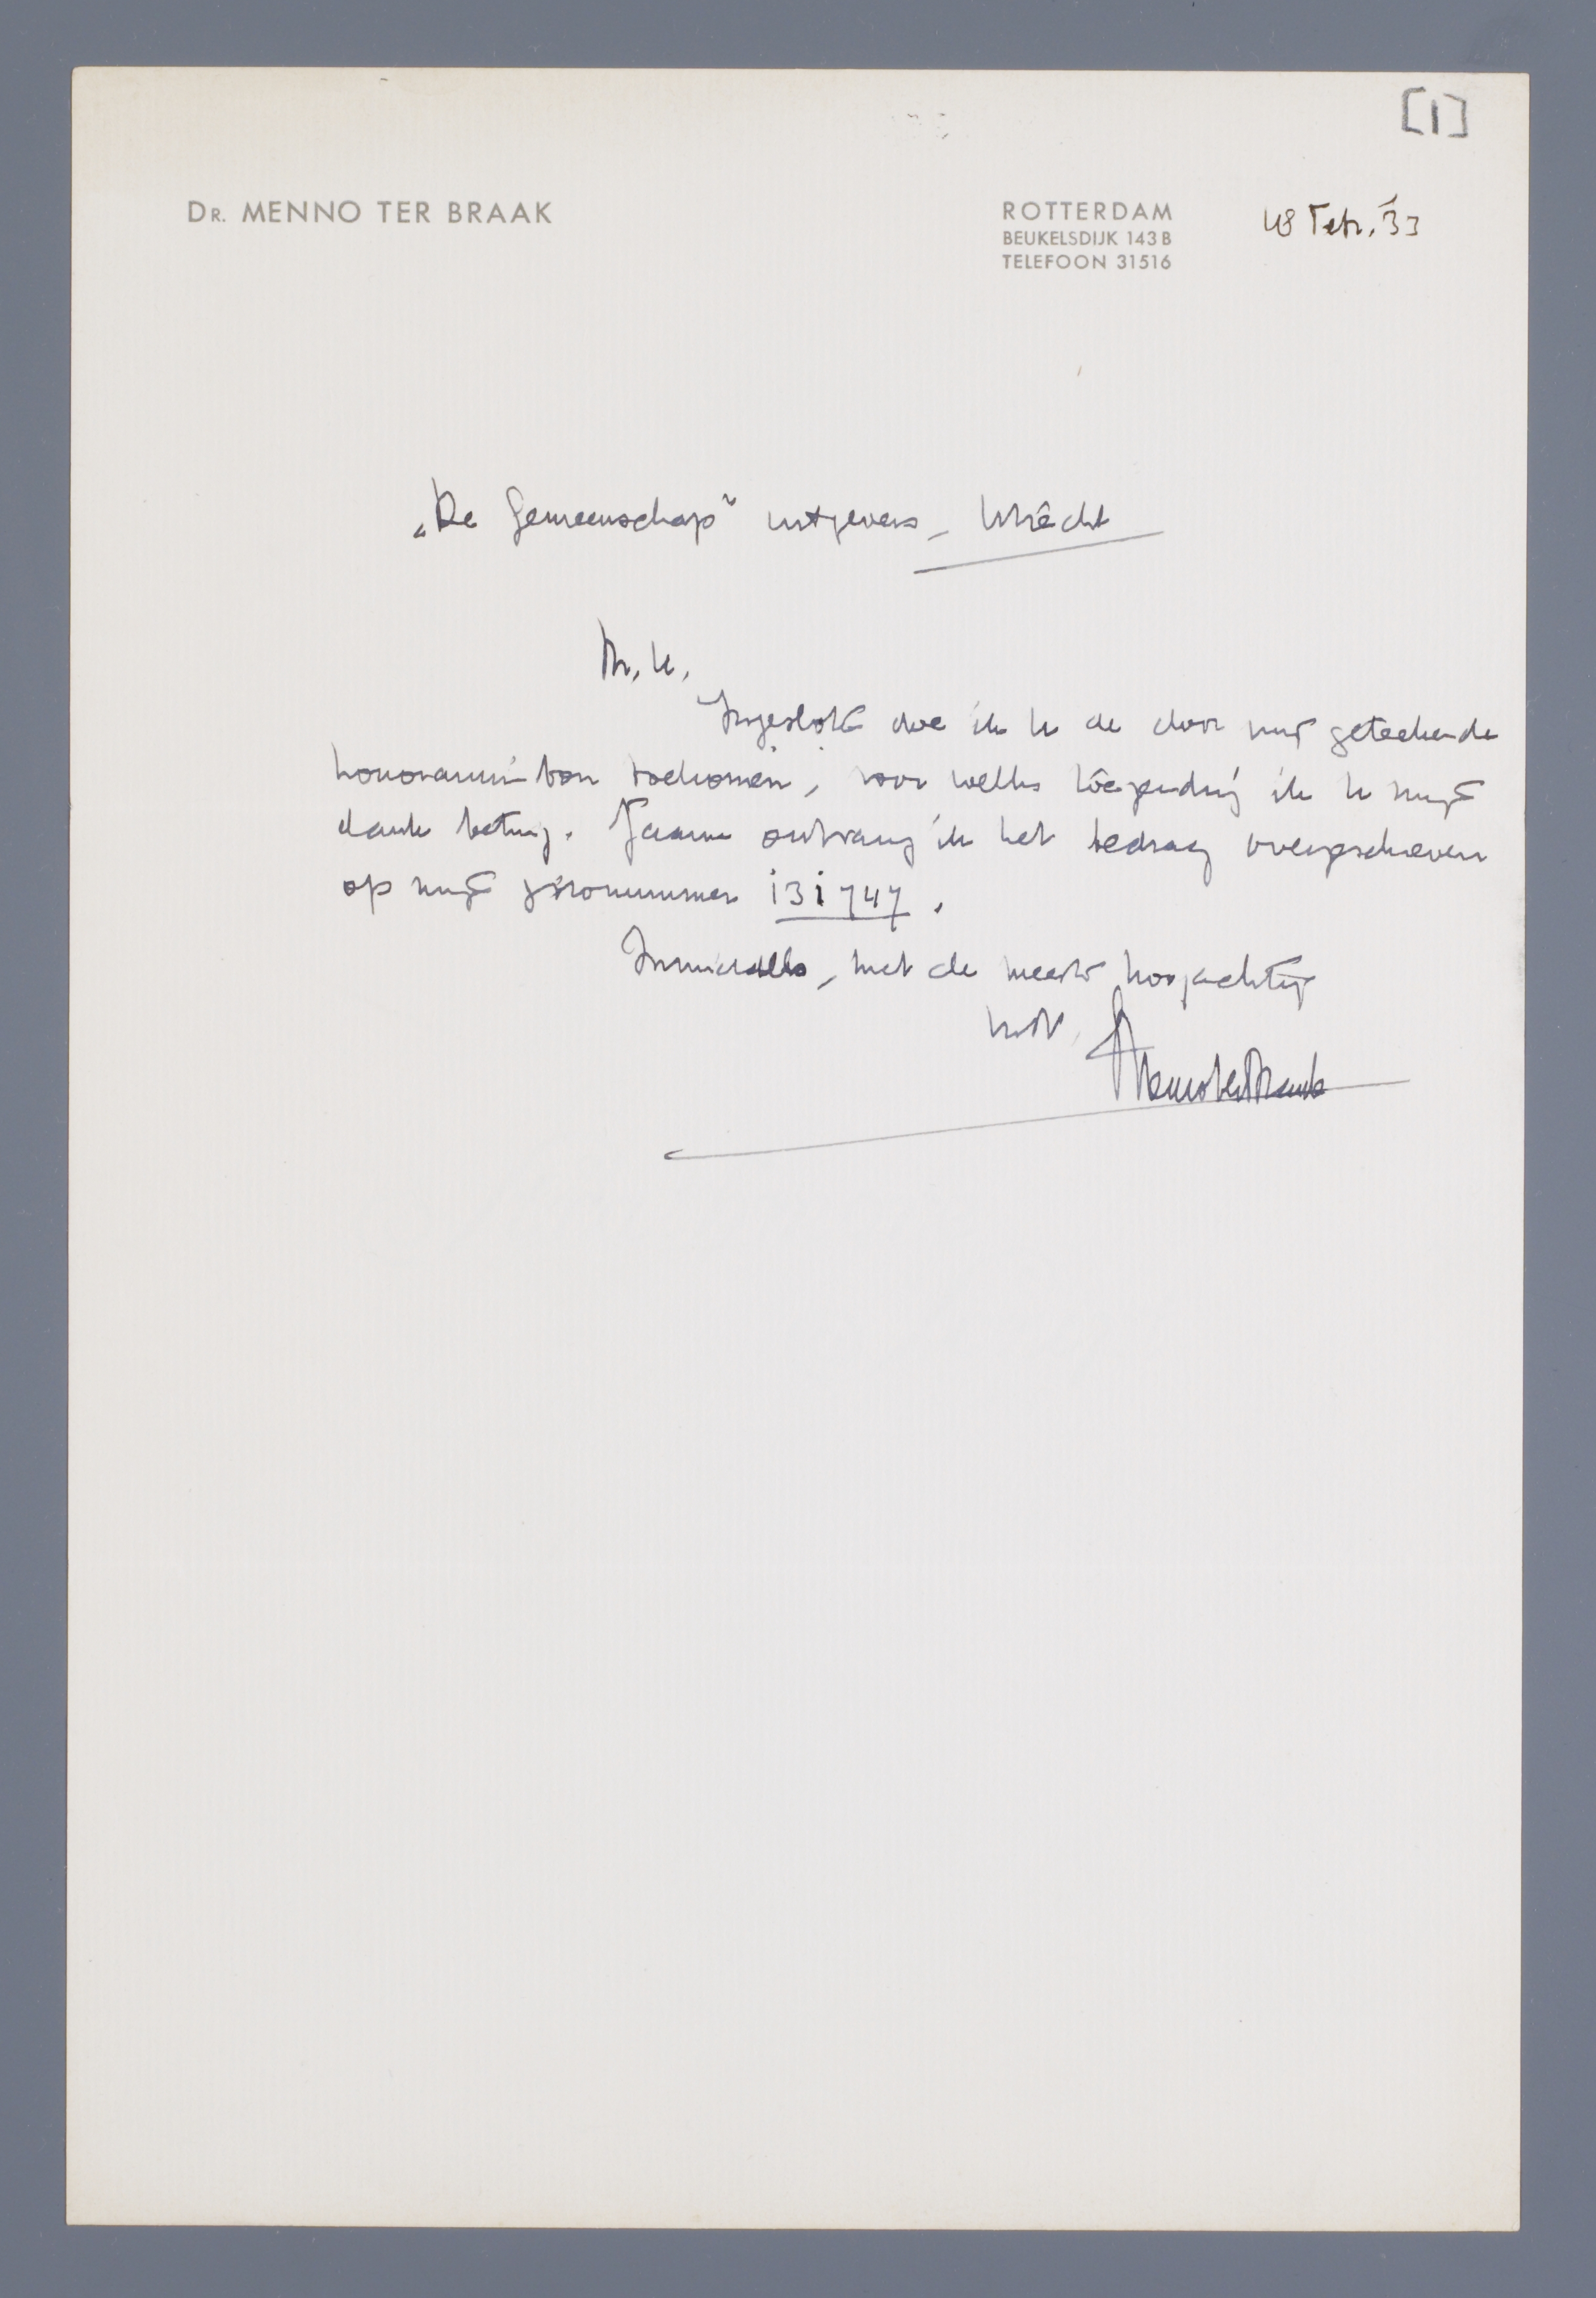 [1]
DR. MENNO TER BRAAK
ROTTERDAM
BEUKELSDIJK 143 B
TELEFOON 31516
18 Febr. '33
„De Gemeenschap” uitgevers, Utrecht
M. H.,
Ingesloten doe ik U de door mij geteekende
honorariumbon toekomen, voor welks toezending ik U mijn
dank betuig. Gaarne ontvang ik het bedrag overgeschreven
op mijn gironummer 131747.
Inmiddels, met de meeste hoogachting
Uw
Menno ter Braak